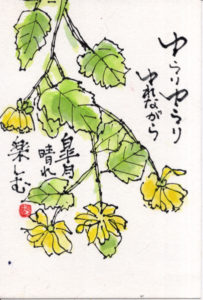 ゆらりゆらり
ゆれながら
皐月
晴れ
楽しむ